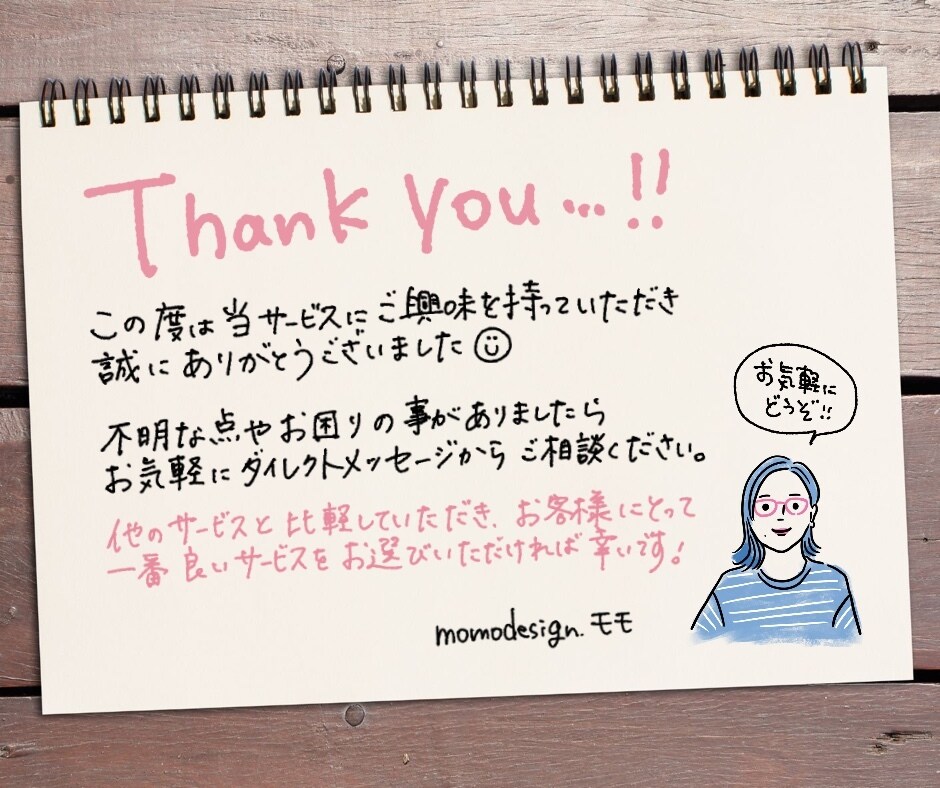 Thank you...!!
この度は当サービスにご興味を持っていただき
誠にありがとうございました
不明な点やお困りの事がありましたら
お気軽にダイレクトメッセージからご相談ください。
他のサービスと比較していただき、お客様にとって
一番良いサービスをお選びいただければ幸いです!
お気軽に
どうぞ!!
momodesign.モモ